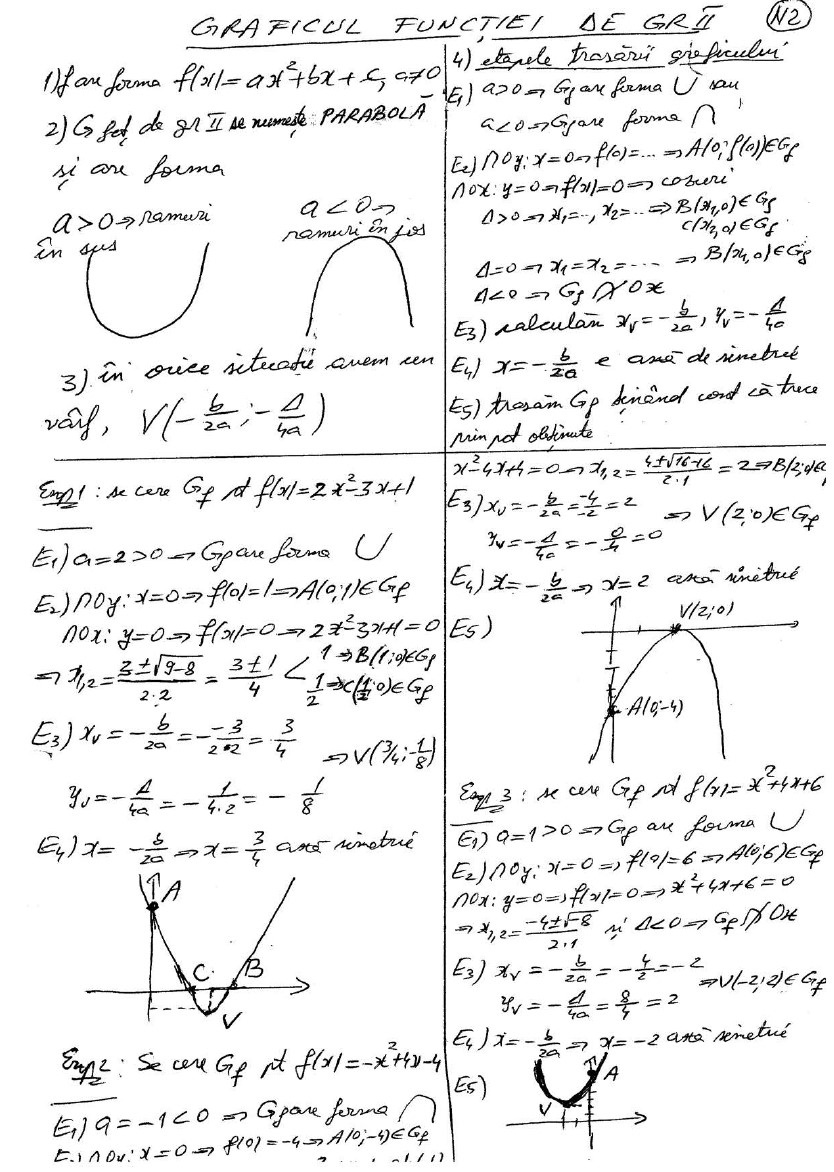 GRAFICUL FUNCȚIEI DE GR II
N2
1) f are forma f(x)=ax²+bx+c, a≠0
2) G fcț de gr II se numește PARABOLĂ
și are forma
a>0 ⇒ ramuri
în sus
a<0 ⇒
ramuri în jos
3) în orice situație avem un
vârf, V(-b/2a; -Δ/4a)
4) etapele trasării graficului
E1) a>0 ⇒ Gf are forma ∪ sau
a<0 ⇒ Gf are forma ∩
E2) ∩Oy: x=0 ⇒ f(0)=... ⇒ A(0; f(0))∈Gf
∩Ox: y=0 ⇒ f(x)=0 ⇒ cazuri
Δ>0 ⇒ x1=..., x2=... ⇒ B(x1,0)∈Gf
C(x2,0)∈Gf
Δ=0 ⇒ x1=x2=... ⇒ B(x1,0)∈Gf
Δ<0 ⇒ Gf ∩̸ Ox
E3) calculăm xv=-b/2a, yv=-Δ/4a
E4) x=-b/2a e axă de simetrie
E5) trasăm Gf ținând cont că trece
prin pct obținute
Exp1: se cere Gf pt f(x)=2x²-3x+1
E1) a=2>0 ⇒ Gf are forma ∪
E2) ∩Oy: x=0 ⇒ f(0)=1 ⇒ A(0;1)∈Gf
∩Ox: y=0 ⇒ f(x)=0 ⇒ 2x²-3x+1=0
⇒ x1,2=(3±√9-8)/2·2 = (3±1)/4 < 1 ⇒ B(1;0)∈Gf
1/2 ⇒ C(1/2;0)∈Gf
E3) xv=-b/2a=-(-3)/2·2=3/4
⇒ V(3/4;-1/8)
yv=-Δ/4a=-1/4·2=-1/8
E4) x=-b/2a ⇒ x=3/4 axă simetrie
A
C
B
V
Exp2: Se cere Gf pt f(x)=-x²+4x-4
E1) a=-1<0 ⇒ Gf are forma ∩
E2) ∩Oy: x=0 ⇒ f(0)=-4 ⇒ A(0;-4)∈Gf
x²-4x+4=0 ⇒ x1,2=(4±√16-16)/2·1=2 ⇒ B(2;0)∈
E3) xv=-b/2a=-4/-2=2
⇒ V(2;0)∈Gf
yv=-Δ/4a=-0/-4=0
E4) x=-b/2a ⇒ x=2 axă simetrie
E5)
V(2;0)
A(0;-4)
Exp3: se cere Gf pt f(x)=x²+4x+6
E1) a=1>0 ⇒ Gf are forma ∪
E2) ∩Oy: x=0 ⇒ f(0)=6 ⇒ A(0;6)∈Gf
∩Ox: y=0 ⇒ f(x)=0 ⇒ x²+4x+6=0
⇒ x1,2=(-4±√-8)/2·1 și Δ<0 ⇒ Gf ∩̸ Ox
E3) xv=-b/2a=-4/2=-2
⇒ V(-2;2)∈Gf
yv=-Δ/4a=8/4=2
E4) x=-b/2a ⇒ x=-2 axă simetrie
E5)
A
V